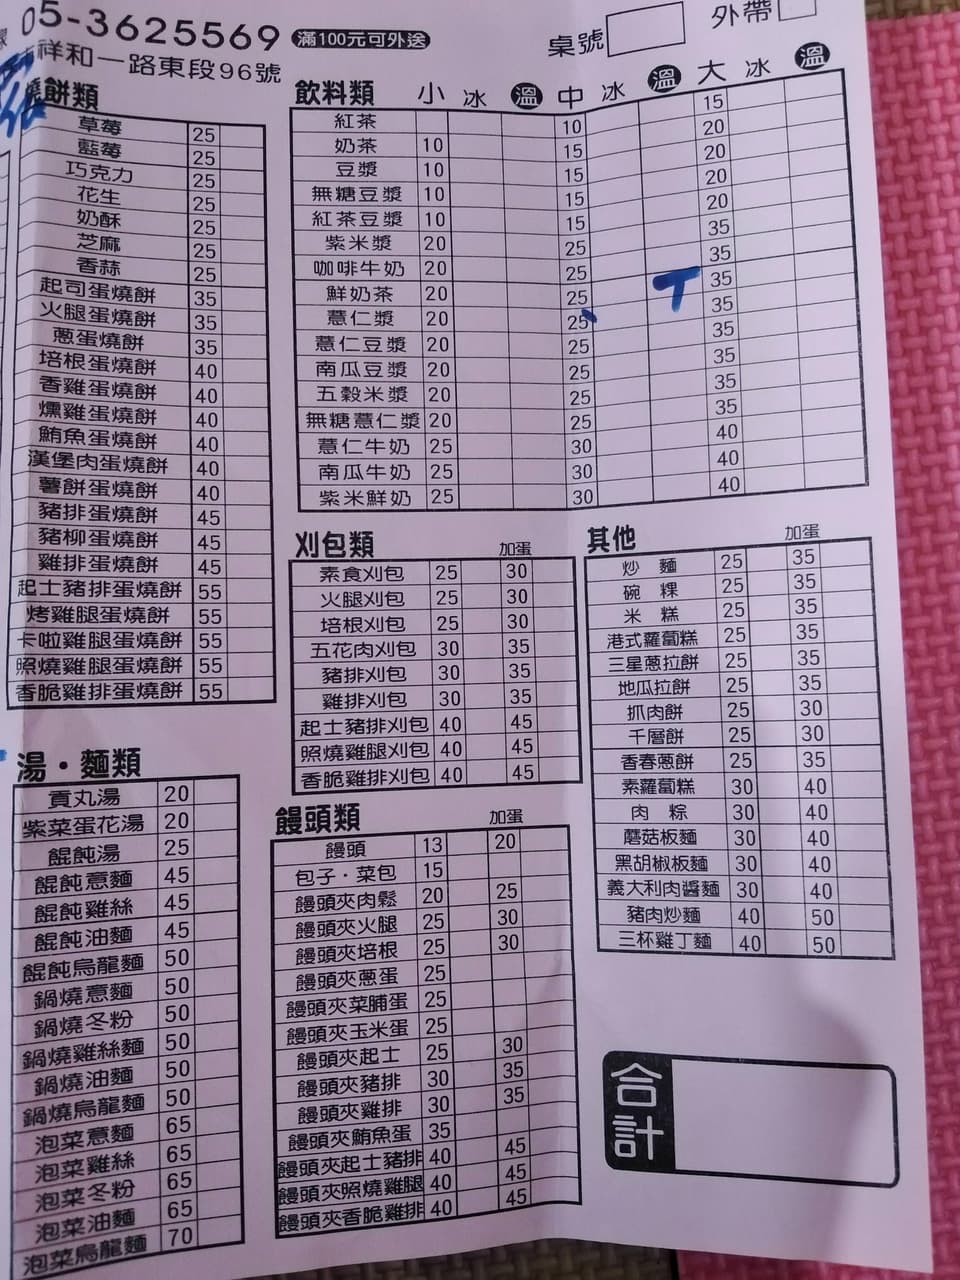 05-3625569 滿100元可外送
桌號
外帶
祥和一路東段96號
燒餅類
草莓 25
藍莓 25
巧克力 25
花生 25
奶酥 25
芝麻 25
香蒜 25
起司蛋燒餅 35
火腿蛋燒餅 35
蔥蛋燒餅 35
培根蛋燒餅 40
香雞蛋燒餅 40
燻雞蛋燒餅 40
鮪魚蛋燒餅 40
漢堡肉蛋燒餅 40
薯餅蛋燒餅 40
豬排蛋燒餅 45
豬柳蛋燒餅 45
雞排蛋燒餅 45
起士豬排蛋燒餅 55
烤雞腿蛋燒餅 55
卡啦雞腿蛋燒餅 55
照燒雞腿蛋燒餅 55
香脆雞排蛋燒餅 55
湯·麵類
貢丸湯 20
紫菜蛋花湯 20
餛飩湯 25
餛飩意麵 45
餛飩雞絲 45
餛飩油麵 45
餛飩烏龍麵 50
鍋燒意麵 50
鍋燒冬粉 50
鍋燒雞絲麵 50
鍋燒油麵 50
鍋燒烏龍麵 50
泡菜意麵 65
泡菜雞絲 65
泡菜冬粉 65
泡菜油麵 65
泡菜烏龍麵 70
飲料類 小 冰 溫 中 冰 溫 大 冰 溫
紅茶 10 15
奶茶 10 15 20
豆漿 10 15 20
無糖豆漿 10 15 20
紅茶豆漿 10 15 20
紫米漿 20 25 35
咖啡牛奶 20 25 35
鮮奶茶 20 25 T 35
薏仁漿 20 25 35
薏仁豆漿 20 25 35
南瓜豆漿 20 25 35
五穀米漿 20 25 35
無糖薏仁漿 20 25 35
薏仁牛奶 25 30 40
南瓜牛奶 25 30 40
紫米鮮奶 25 30 40
刈包類 加蛋
素食刈包 25 30
火腿刈包 25 30
培根刈包 25 30
五花肉刈包 30 35
豬排刈包 30 35
雞排刈包 30 35
起士豬排刈包 40 45
照燒雞腿刈包 40 45
香脆雞排刈包 40 45
饅頭類 加蛋
饅頭 13 20
包子·菜包 15
饅頭夾肉鬆 20 25
饅頭夾火腿 25 30
饅頭夾培根 25 30
饅頭夾蔥蛋 25
饅頭夾菜脯蛋 25
饅頭夾玉米蛋 25
饅頭夾起士 25 30
饅頭夾豬排 30 35
饅頭夾雞排 30 35
饅頭夾鮪魚蛋 35
饅頭夾起士豬排 40 45
饅頭夾照燒雞腿 40 45
饅頭夾香脆雞排 40 45
其他 加蛋
炒麵 25 35
碗粿 25 35
米糕 25 35
港式蘿蔔糕 25 35
三星蔥拉餅 25 35
地瓜拉餅 25 35
抓肉餅 25 30
千層餅 25 30
香春蔥餅 25 35
素蘿蔔糕 30 40
肉粽 30 40
蘑菇板麵 30 40
黑胡椒板麵 30 40
義大利肉醬麵 30 40
豬肉炒麵 40 50
三杯雞丁麵 40 50
合計